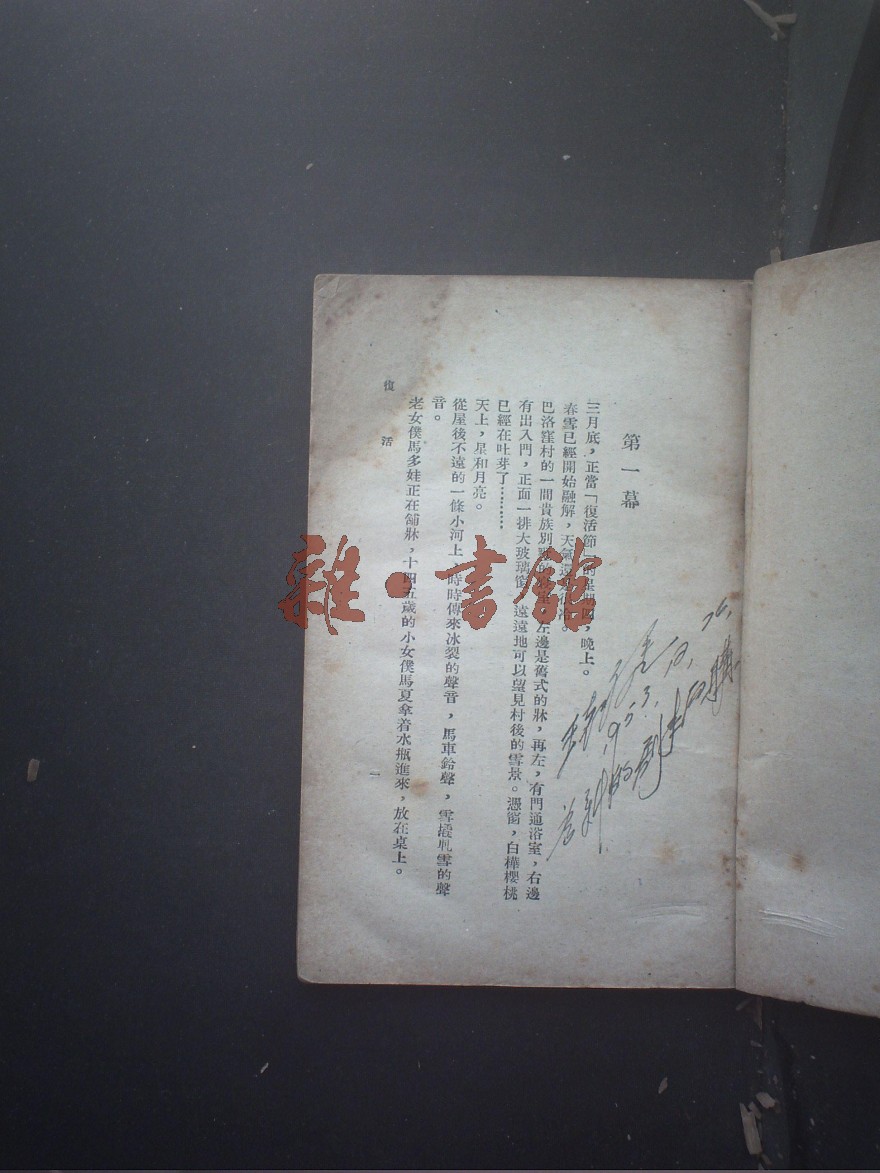 第一幕
三月底,正當「復活節」的星期國,晚上。
春雪已經開始融解,天氣還
巴洛窪村的一間貴族別 左邊是舊式的牀,再左,有門通浴室,右邊
有出入門,正面一排大玻璃窗 遠遠地可以望見村後的雪景。憑窗,白樺櫻桃
已經在吐芽了…………
天上,星和月亮。
從屋後不遠的一條小河上 時時傳來冰裂的聲音,馬車鈴聲,雪橇軋雪的聲
音。
老女僕馬多娃正在舖牀,十四五歲的小女僕馬夏拿着水瓶進來,放在桌上。
復活
一
1953.10.
雜·書館